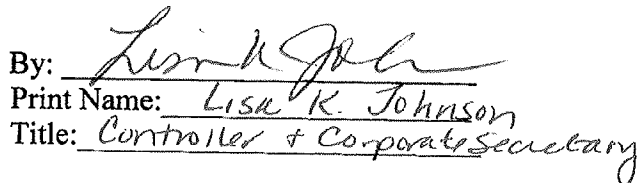 By: Lisa K Joh
Print Name: Lisa K. Johnson
Title: Controller + Corporate Secretary